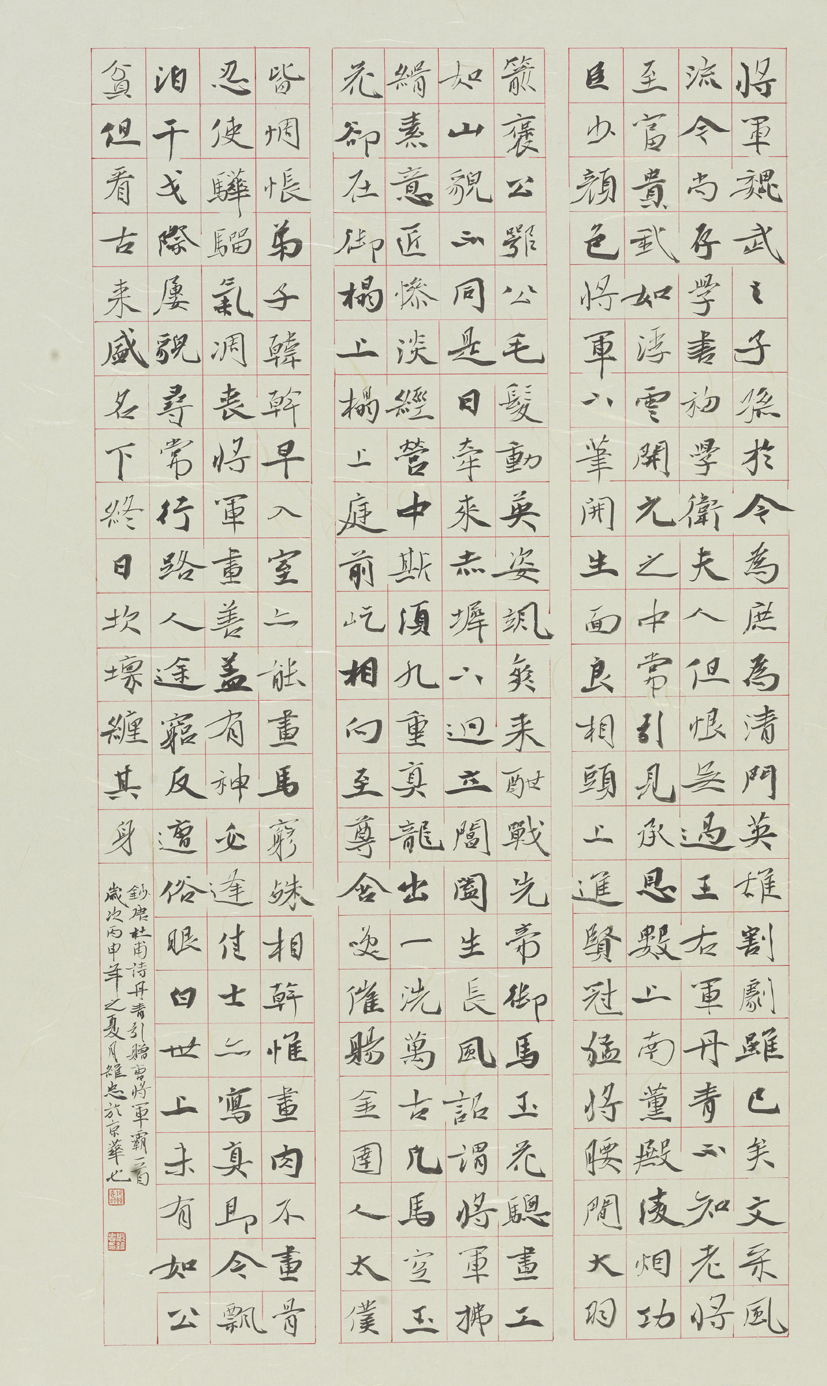 將軍魏武之子孫於今為庶為清門英雄割劇雖已矣文采風
流今尚存學書初學衛夫人但恨無過王右軍丹青不知老將
至富貴我如浮雲開元之中常引見承恩數上南薰殿凌烟功
臣少顏色將軍下筆開生面良相頭上進賢冠猛將腰間大羽
箭褒公鄂公毛髮動英姿颯爽来酣戰先帝御馬玉花驄畫工
如山貌不同是日牽來赤墀下迥立閶闔生長風詔謂將軍拂
絹素意匠慘淡經營中斯須九重真龍出一洗萬古凡馬空玉
花卻在御榻上榻上庭前屹相向至尊含笑催賜金圉人太僕
皆惆悵弟子韓幹早入室亦能畫馬窮殊相幹惟畫肉不畫骨
忍使驊騮氣凋喪將軍畫善蓋有神必逢佳士亦寫真即今飄
泊干戈際屢貌尋常行路人途窮反遭俗眼白世上未有如公
貧但看古来盛名下終日坎壈纏其身
鈔唐杜甫詩丹青引贈曹將軍霸一首
歲次丙申年之夏月忠於京華也